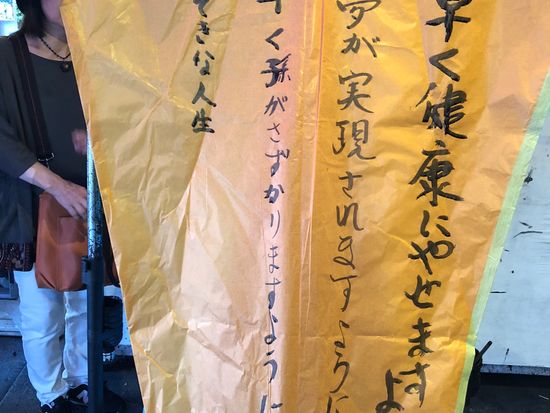 早く健康にやせますよ
夢が実現されますように
早く孫がさずかりますように
てきな人生